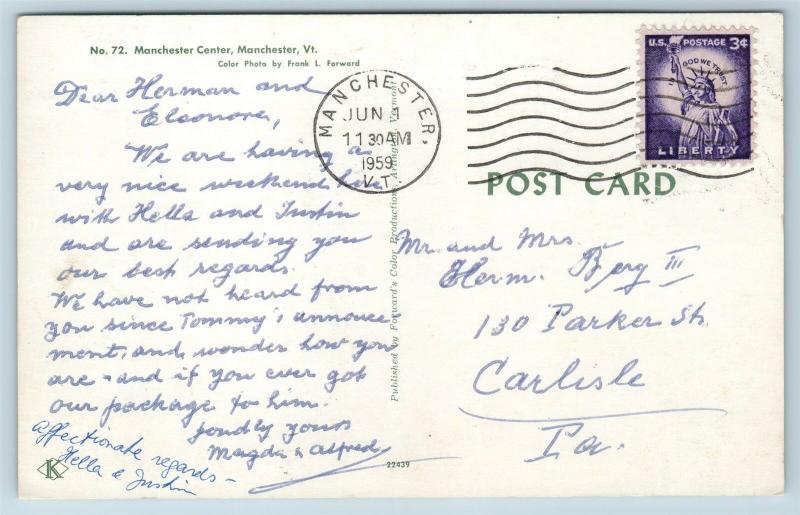 No. 72. Manchester Center, Manchester, Vt.
Color Photo by Frank L. Forward
Dear Herman and
Eleonore,
We are having a
very nice weekend here
with Hella and Justin
and are sending you
our best regards.
We have not heard from
you since Tommy's announce
ment, and wonder how you
are - and if you ever got
our package to him.
fondly yours
Magda & Alfred
Affectionate regards -
Hella & Justin
K
22439
Published by Forward's Color Productions, Arlington, Vermont
MANCHESTER.
JUN
11 30 AM
1959
VT.
U.S. POSTAGE 3¢
IN GOD WE TRUST
LIBERTY
POST CARD
Mr. and Mrs.
Herm. Berg III
130 Parker St.
Carlisle
Pa.